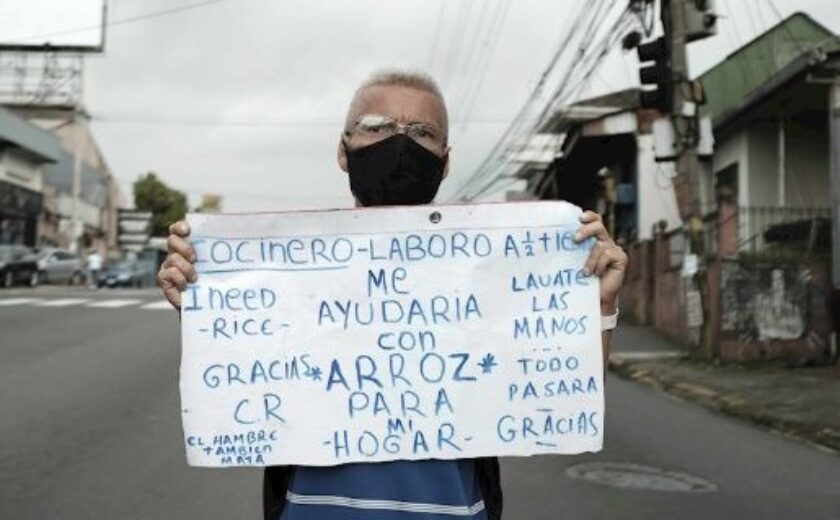 COCINERO-LABORO A ½
I neeD
-RICE-
GRACIAS
C.R
EL HAMBRE
TAMBIEN
MATA
Me
AYUDARIA
con
*ARROZ*
PARA
MI
-HOGAR-
LAVATE
LAS
MANOS
...
TODO
PASARA
GRACIAS